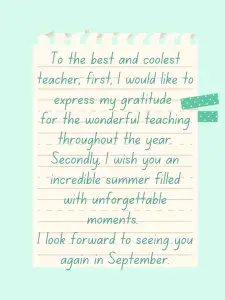 To the best and coolest
teacher, first, I would like to
express my gratitude
for the wonderful teaching
throughout the year.
Secondly, I wish you an
incredible summer filled
with unforgettable
moments.
I look forward to seeing you
again in September.